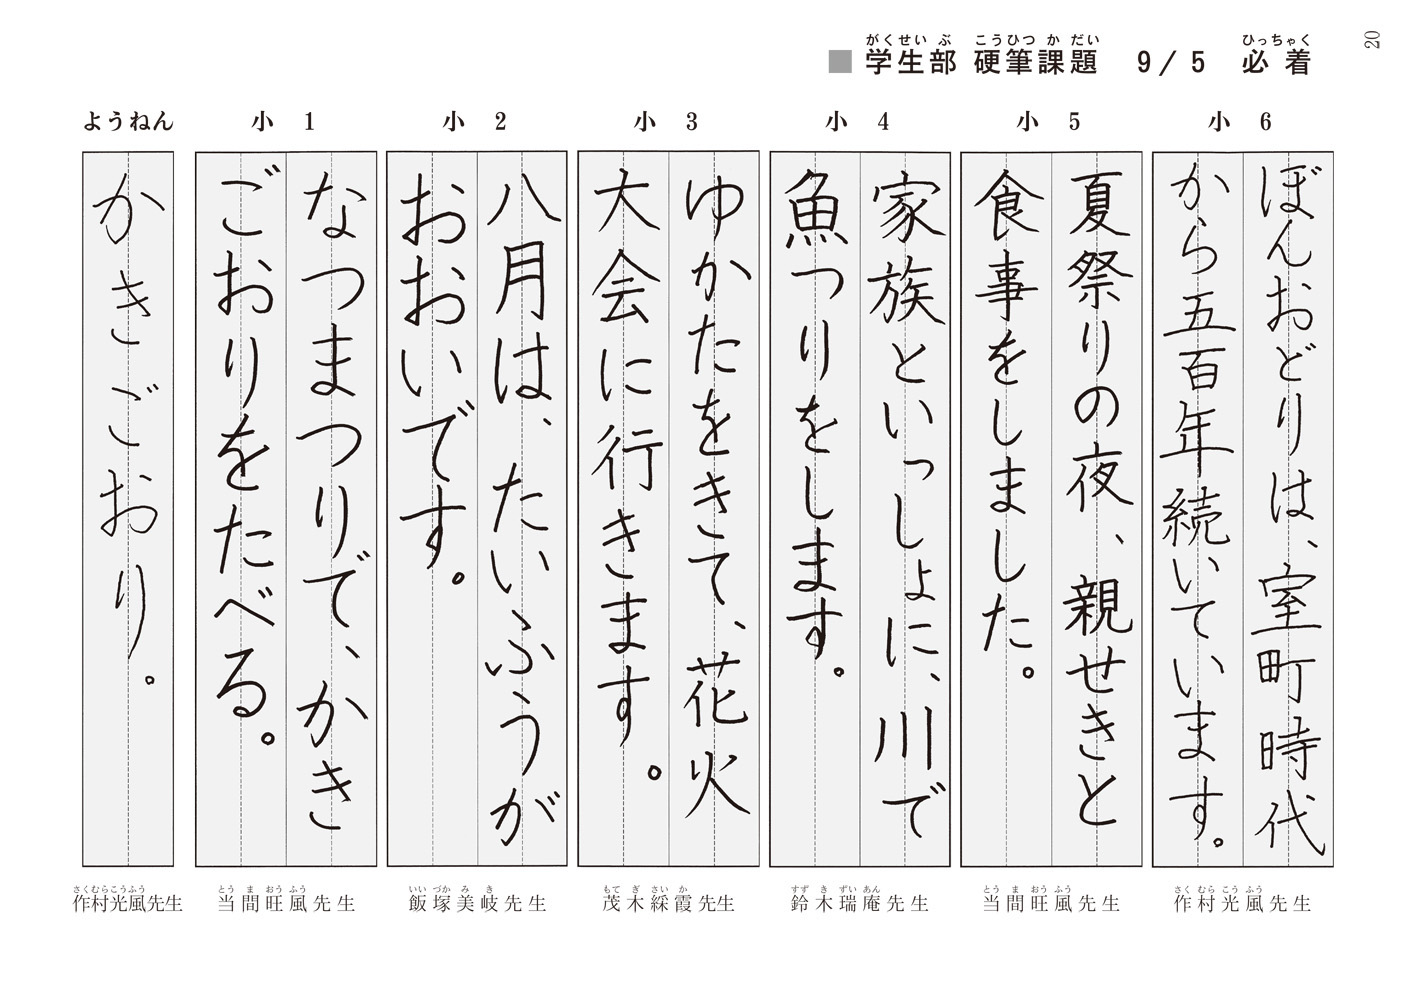 20
■学生部 硬筆課題 9/5 必着
がくせいぶ こうひつかだい ひっちゃく
小6
ぼんおどりは、室町時代
から五百年続いています。
作村光風先生
さくむらこうふう
小5
夏祭りの夜、親せきと
食事をしました。
当間旺風先生
とうまおうふう
小4
家族といっしょに、川で
魚つりをします。
鈴木瑞庵先生
すずきずいあん
小3
ゆかたをきて、花火
大会に行きます。
茂木綵霞先生
もてぎさいか
小2
八月は、たいふうが
おおいです。
飯塚美岐先生
いいづかみき
小1
なつまつりで、かき
ごおりをたべる。
当間旺風先生
とうまおうふう
ようねん
かきごおり。
作村光風先生
さくむらこうふう